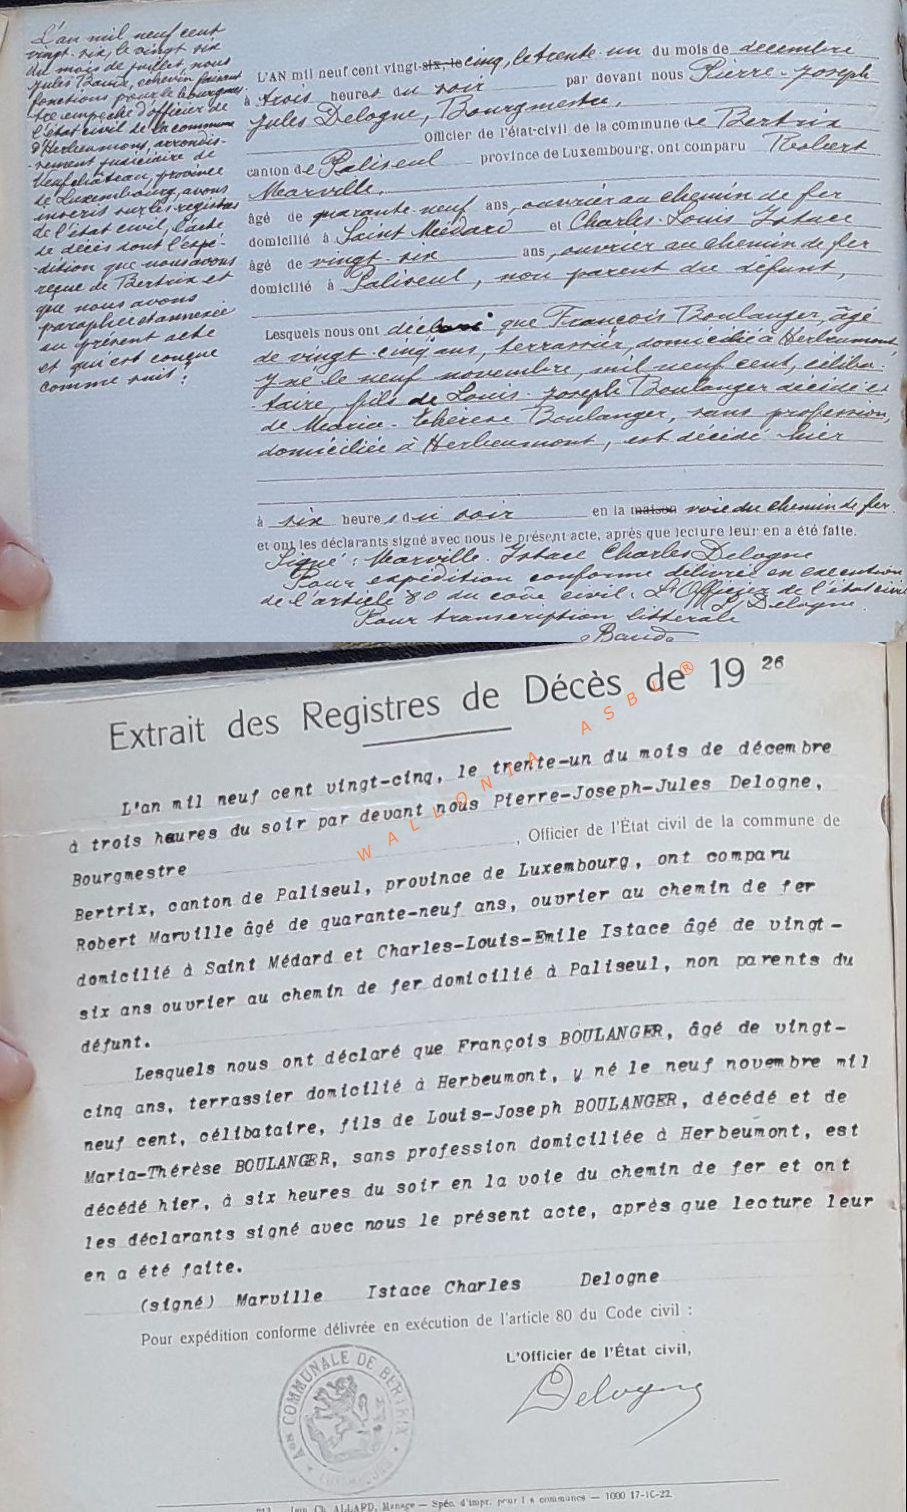 L'an mil neuf cent
vingt-six, le vingt six
du mois de juillet, nous
Jules Baude, échevin faisant
fonctions pour le bourgmes-
tre empêché d'officier de
l'état civil de la commune
d'Herbeumont, arrondis-
-sement judiciaire de
Neufchâteau, province
de Luxembourg, avons
inscris sur les registres
de l'état civil, l'acte
de décès dont l'expé-
-dition que nous avons
reçue de Bertrix et
que nous avons
paraphée et annexée
au présent acte
et qui est conçue
comme suit :
L'AN mil neuf cent vingt-six, le cinq, le trente-un du mois de décembre
à trois heures du soir par devant nous Pierre-Joseph
Jules Delogne, Bourgmestre,
Officier de l'état-civil de la commune de Bertrix
canton de Paliseul province de Luxembourg, ont comparu Robert
Marville,
âgé de quarante-neuf ans, ouvrier au chemin de fer
domicilié à Saint Médard et Charles-Louis Istace
âgé de vingt-six ans, ouvrier au chemin de fer
domicilié à Paliseul, non parent du défunt,
Lesquels nous ont déclaré que François Boulanger, âgé
de vingt-cinq ans, terrassier, domicilié à Herbeumont,
y né le neuf novembre, mil neuf cent, céliba-
-taire, fils de Louis-Joseph Boulanger décédé et
de Maria-Thérèse Boulanger, sans profession,
domiciliée à Herbeumont, est décédé hier
à six heures du soir en la maison voie du chemin de fer.
et ont les déclarants signé avec nous le présent acte, après que lecture leur en a été faite.
Signé : Marville. Istace Charles Delogne
Pour expédition conforme délivrée en exécution
de l'article 80 du code civil. L'Officier de l'état civil
(s) Delogne.
Pour transcription littérale
Baude
Extrait des Registres de Décès de 19 26
L'an mil neuf cent vingt-cinq, le trente-un du mois de décembre
à trois heures du soir par devant nous Pierre-Joseph-Jules Delogne,
Bourgmestre , Officier de l'État civil de la commune de
Bertrix, canton de Paliseul, province de Luxembourg, ont comparu
Robert Marville âgé de quarante-neuf ans, ouvrier au chemin de fer
domicilié à Saint Médard et Charles-Louis-Emile Istace âgé de vingt-
six ans ouvrier au chemin de fer domicilié à Paliseul, non parents du
défunt.
Lesquels nous ont déclaré que François BOULANGER, âgé de vingt-
cinq ans, terrassier domicilié à Herbeumont, y né le neuf novembre mil
neuf cent, célibataire, fils de Louis-Joseph BOULANGER, décédé et de
Maria-Thérèse BOULANGER, sans profession domiciliée à Herbeumont, est
décédé hier, à six heures du soir en la voie du chemin de fer et ont
les déclarants signé avec nous le présent acte, après que lecture leur
en a été faite.
(signé) Marville Istace Charles Delogne
Pour expédition conforme délivrée en exécution de l'article 80 du Code civil :
L'Officier de l'État civil,
Delogne
Aon COMMUNALE DE BERTRIX
LUXEMBOURG
Imp. Ch. ALLARD, Manage — Spéc. d'impr. pour les communes — 1000 17-10-22.
WALLONIA ASBL ®